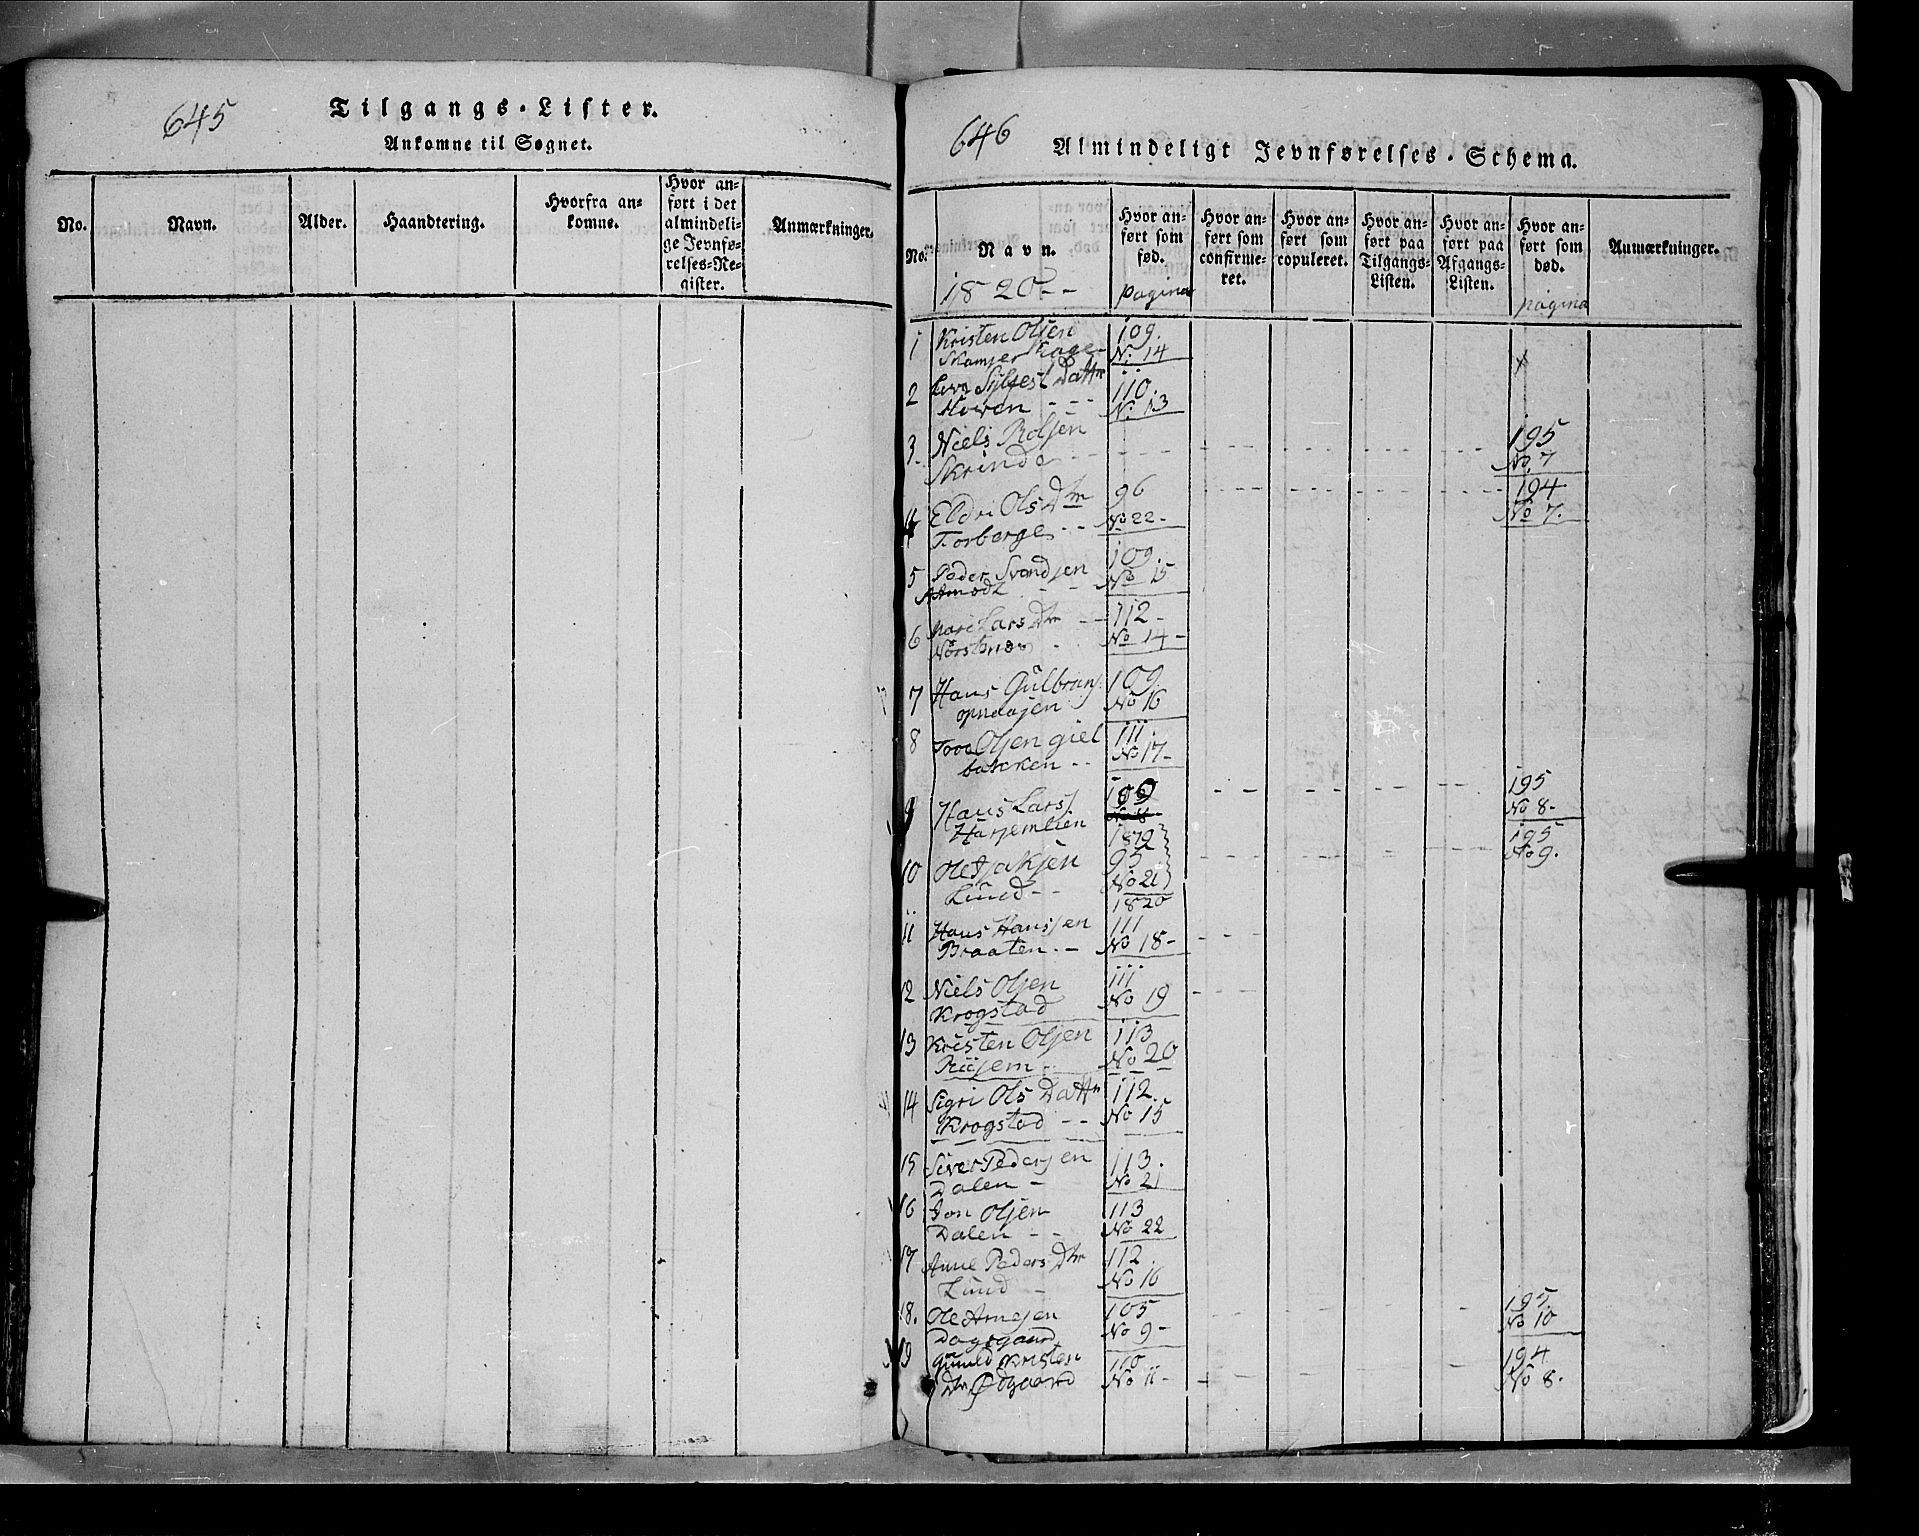 645
Tilgangs-Lister.
Ankomne til Sognet.
No.
Navn.
Alder.
Haandtering.
Hvorfra an-
komne.
Hvor an-
ført i det
almindeli-
ge Jevnfø-
relses-Re-
gister.
Anmærkninger.
646
Almindeligt Jevnførelses-Schema.
No.
Navn.
1820
Hvor an-
ført som
fød.
pagina
Hvor an-
ført som
confirme-
ret.
Hvor an-
ført som
copuleret.
Hvor an-
ført paa
Tilgangs-
Listen.
Hvor an-
ført paa
Afgangs-
Listen.
Hvor an-
ført som
død.
pagina
Anmærkninger.
1 Kristen Olsen 109.
No 14
2 Datter 110.
No 13
3. Niels Rolsen 195
Skrinde No 7
4 Eldri Ols Dtr 96 194
Torberge No 22 No 7.
5 Peder Svendsen 109.
No 15
6 Mari Lars Dtr 112
No 14
7 Hans Gulbrans. 109
No 16
8 Olsen giel 111.
bakken No 17
9 Hans Lars. 109 195
Harjemlien No 8
1819 195
10 Ole Isaksen 95 No 9.
Lund No 21
1820
11 Hans Hanssen 111
Braaten No 18
12 Niels Olsen 111
Krogstad No 19
13 Kristen Olsen 113
Risem No 20
14 Sigri Ols Dattr 112.
Krogstad No 15
15 Siver Pedersen 113.
Dalen No 21
16 Jon Olsen 113
Dalen No 22
17 Anne Peders Dtr 112.
Lund No 16
18. Ole Arnesen 105 195.
Dagsgaard No 9 No 10
19 Kristen 110 194
Dtr Ødgaard No 11 No 8.